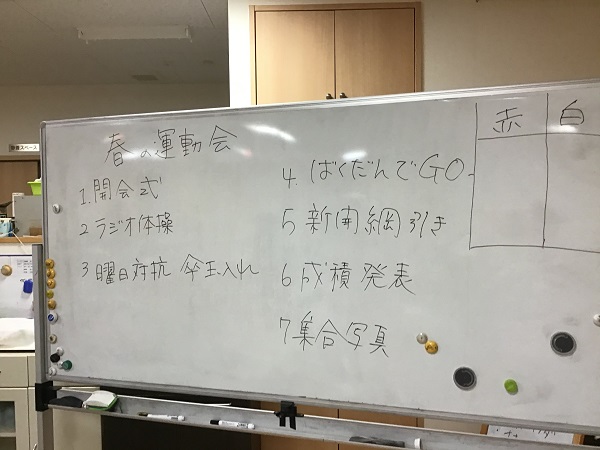 春の運動会
1.開会式
2 ラジオ体操
3 曜日対抗 傘玉入れ
4. ばくだんでGO
5 新聞綱引き
6 成積発表
7 集合写真
赤 白